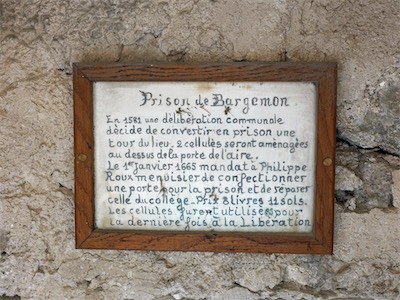 Prison de Bargemon
En 1581 une délibération communale
décide de convertir en prison une
tour du lieu. 2 cellules seront aménagées
au dessus de la porte de l'aire.
Le 1er Janvier 1665 mandat à Philippe
Roux menuisier de confectionner
une porte pour la prison et de réparer
celle du collège. Prix 3 livres 11 sols.
Les cellules furent utilisées pour
la dernière fois à la Libération